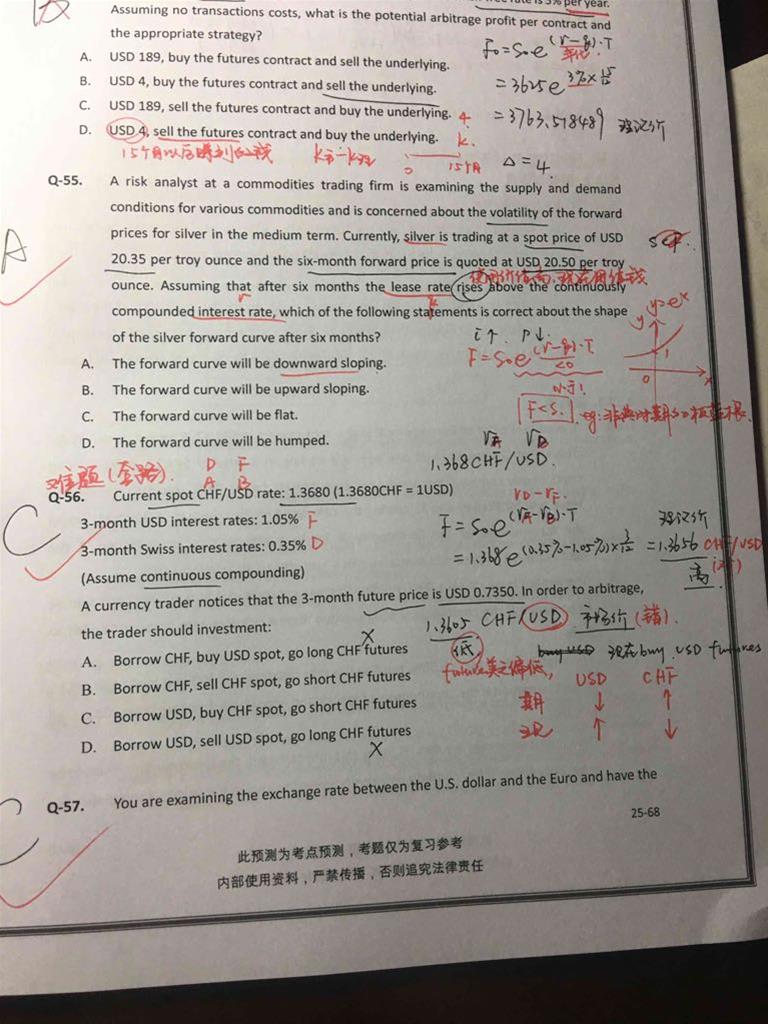 per year.
Assuming no transactions costs, what is the potential arbitrage profit per contract and
the appropriate strategy?
A. USD 189, buy the futures contract and sell the underlying.
B. USD 4, buy the futures contract and sell the underlying.
C. USD 189, sell the futures contract and buy the underlying.
D. USD 4, sell the futures contract and buy the underlying.
F₀=S₀e^(r-q)·T
年化
=3625e^3%×15/12
=3763.518489 理论价
4
k
0 15个月
Δ=4
Q-55. A risk analyst at a commodities trading firm is examining the supply and demand
conditions for various commodities and is concerned about the volatility of the forward
prices for silver in the medium term. Currently, silver is trading at a spot price of USD
20.35 per troy ounce and the six-month forward price is quoted at USD 20.50 per troy
ounce. Assuming that after six months the lease rate rises above the continuously
compounded interest rate, which of the following statements is correct about the shape
of the silver forward curve after six months?
A. The forward curve will be downward sloping.
B. The forward curve will be upward sloping.
C. The forward curve will be flat.
D. The forward curve will be humped.
A
r
y=e^x
y
1
0
x
i↑. P↓.
F=S₀e^(r-q)·T
<0
小于1
F<S.
难题(套路).
D F
A B
rA rB
1.368CHF/USD.
Q-56. Current spot CHF/USD rate: 1.3680 (1.3680CHF = 1USD)
3-month USD interest rates: 1.05% F
3-month Swiss interest rates: 0.35% D
(Assume continuous compounding)
A currency trader notices that the 3-month future price is USD 0.7350. In order to arbitrage,
the trader should investment:
A. Borrow CHF, buy USD spot, go long CHF futures
B. Borrow CHF, sell CHF spot, go short CHF futures
C. Borrow USD, buy CHF spot, go short CHF futures
D. Borrow USD, sell USD spot, go long CHF futures
C
X
X
rD-rF.
F=S₀e^(rA-rB)·T
理论价
=1.368e^(0.35%-1.05%)×3/12 =1.3656 CHF/USD
高
1.3605 CHF/USD 市场价(错).
低,
现在buy USD futures
future美元偏低,
USD CHF
期 ↓ ↑
现 ↑ ↓
Q-57. You are examining the exchange rate between the U.S. dollar and the Euro and have the
25-68
此预测为考点预测，考题仅为复习参考
内部使用资料，严禁传播，否则追究法律责任